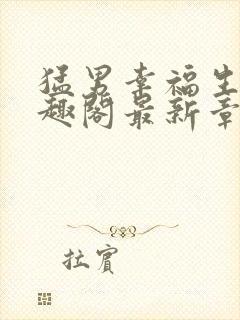 猛男幸福生
趣阁最新章
拉宾